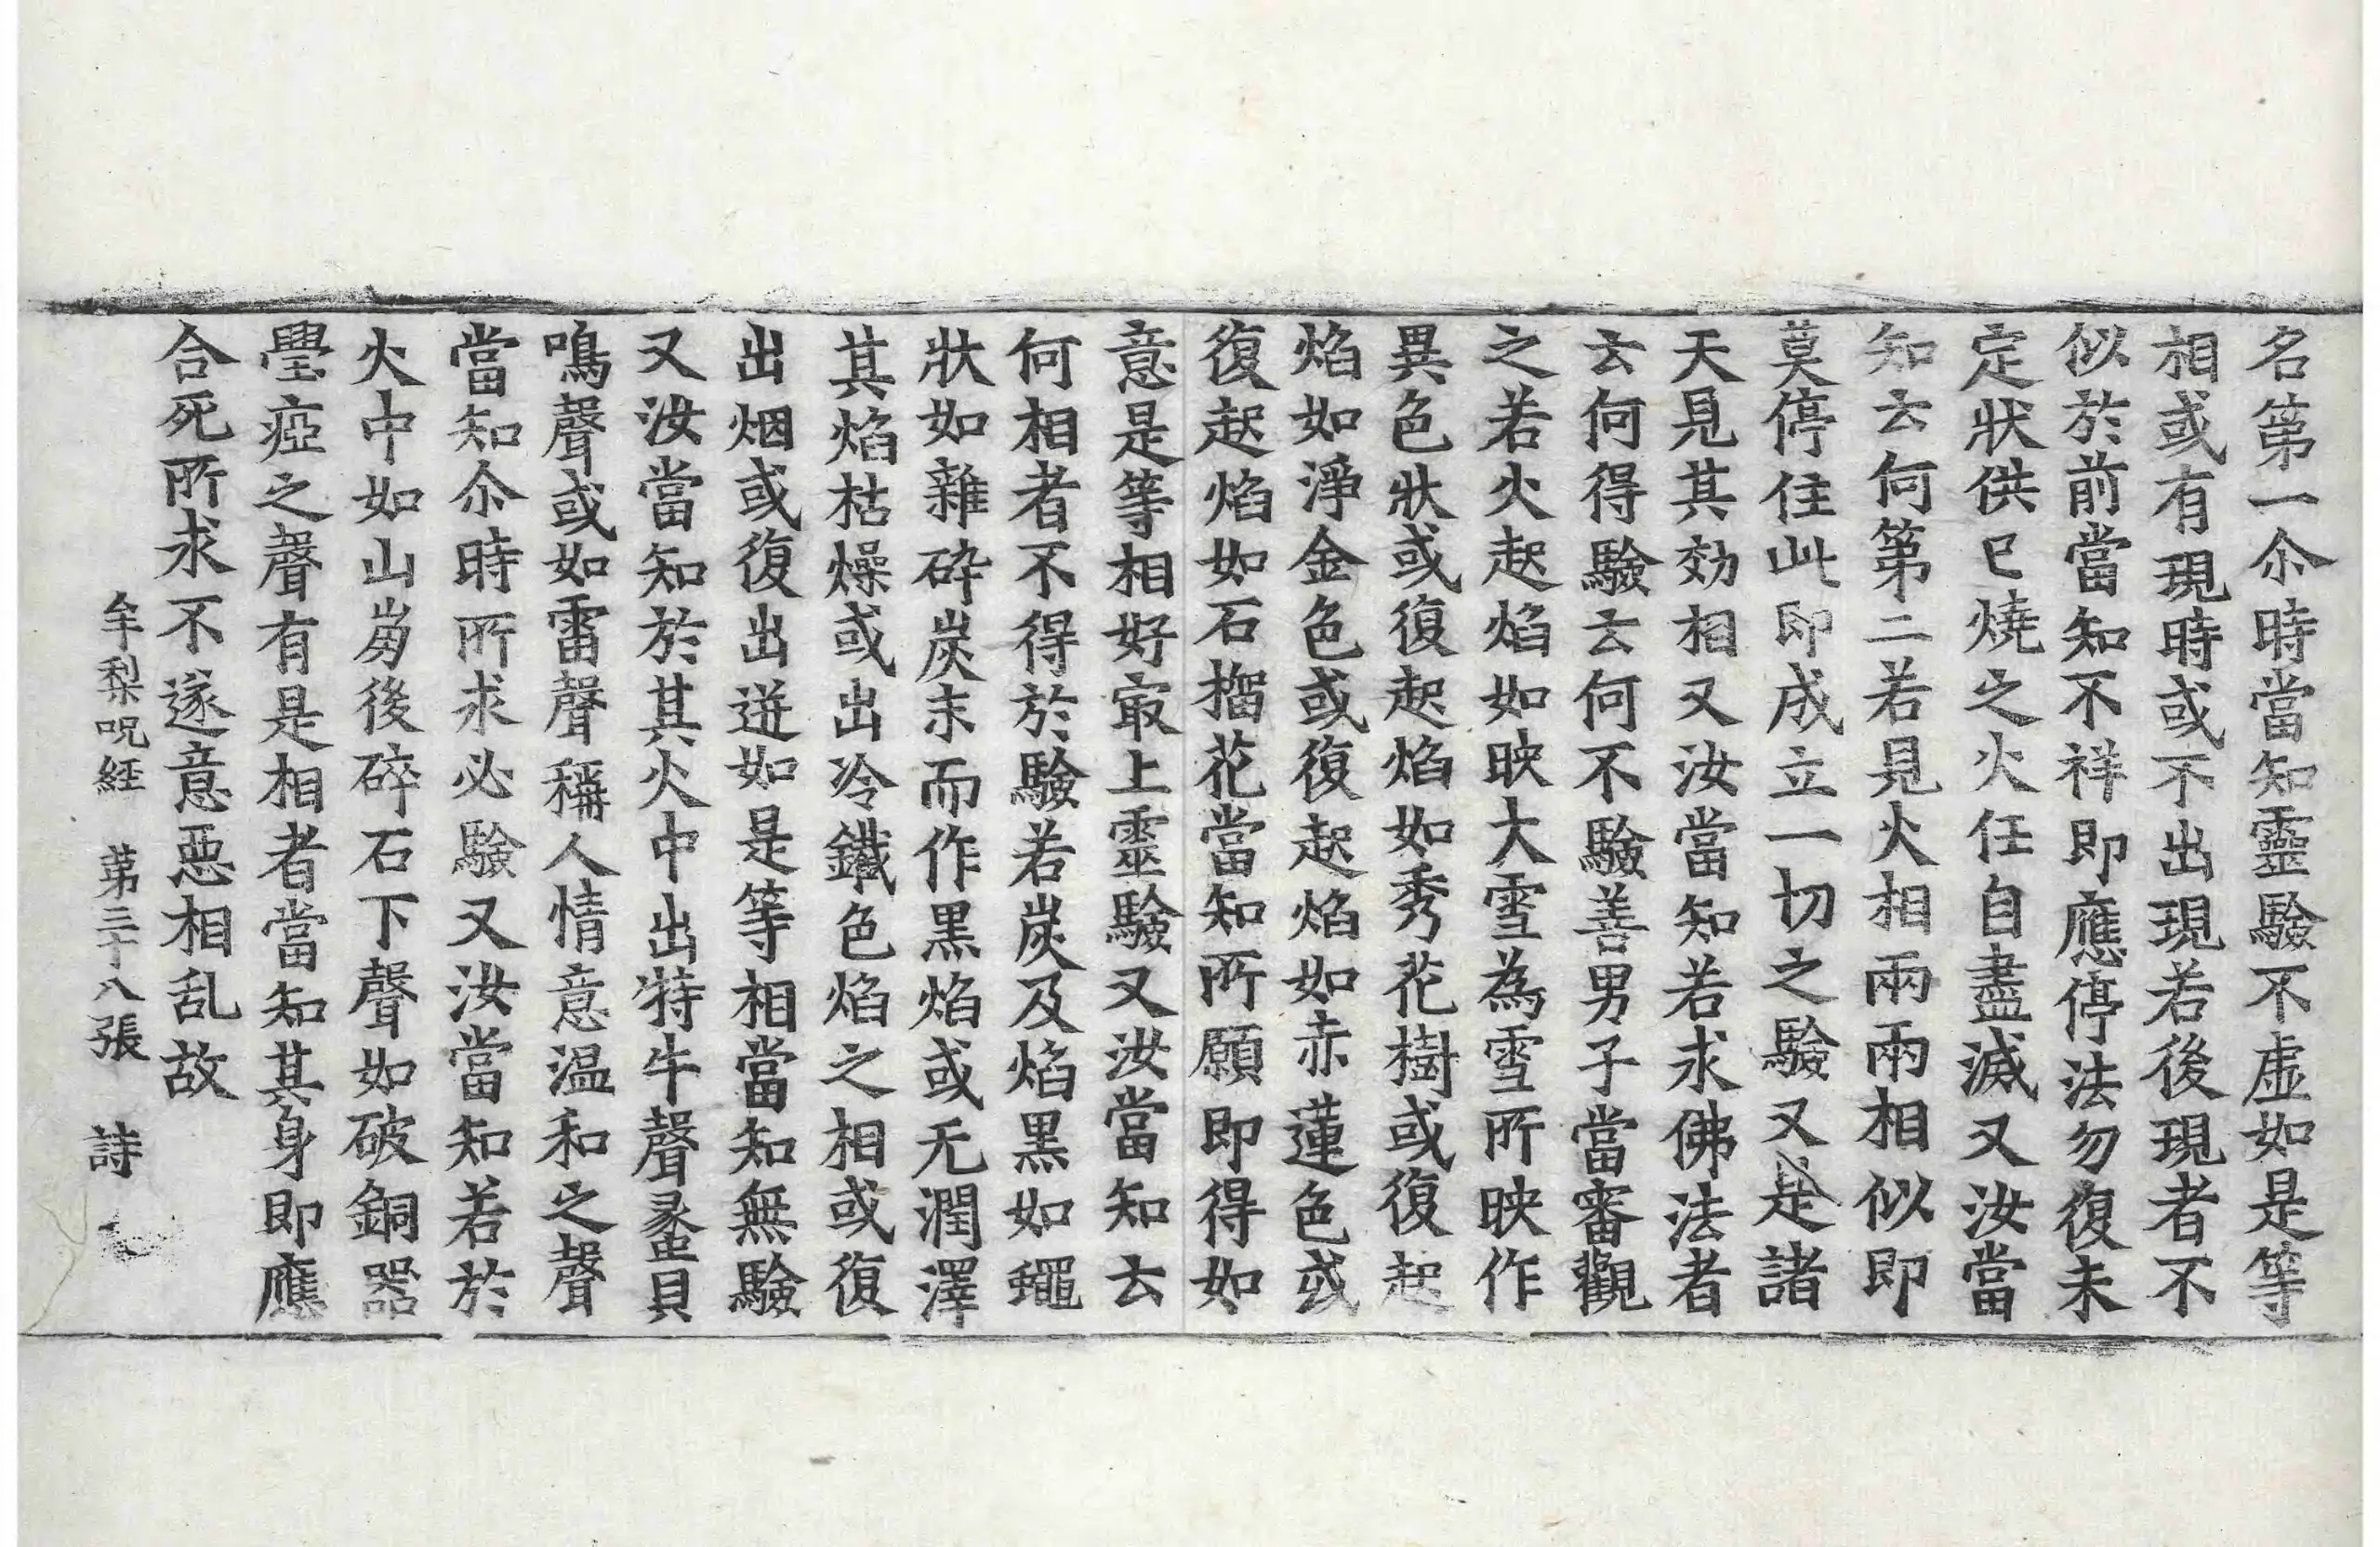 名第一尒時當知靈驗不虛如是等
相或有現時或不出現若後現者不
似於前當知不祥即應停法勿復未
定狀供已燒之火任自盡滅又汝當
知云何第二若見火相兩兩相似即
莫停住此即成立一切之驗又是諸
天見其効相又汝當知若求佛法者
云何得驗云何不驗善男子當審觀
之若火起焰如映大雪為雪所映作
異色狀或復起焰如秀花樹或復起
焰如淨金色或復起焰如赤蓮色或
復起焰如石榴花當知所願即得如
意是等相好㝡上靈驗又汝當知云
何相者不得於驗若炭及焰黑如蠅
狀如雜碎炭末而作黑焰或无潤澤
其焰枯燥或出冷鐵色焰之相或復
出烟或復出迸如是等相當知無驗
又汝當知於其火中出特牛聲蠡貝
鳴聲或如雷聲稱人情意溫和之聲
當知尒時所求必驗又汝當知若於
火中如山崩後碎石下聲如破銅器
瘂之聲有是相者當知其身即應
合死所求不遂意惡相乱故
牟梨呪経　第三十八張　詩